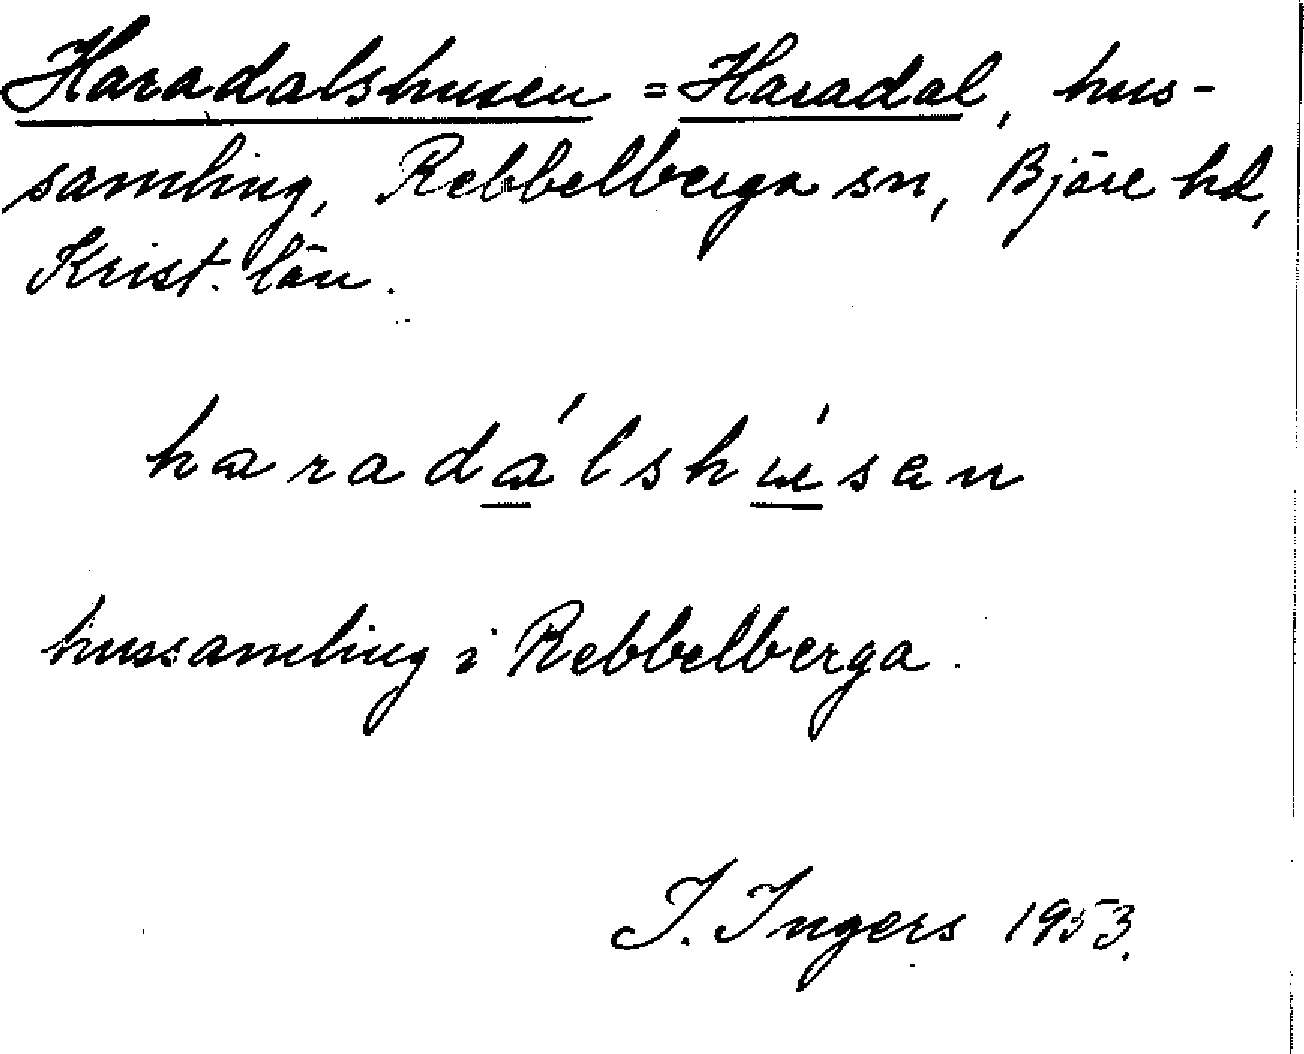 Haradalshusen = Haradal, hus-
samling, Rebbelberga sn, Bjäre hd,
Krist. län.
haradálshúsen
hussamling i Rebbelberga.
I. Ingers 1953.